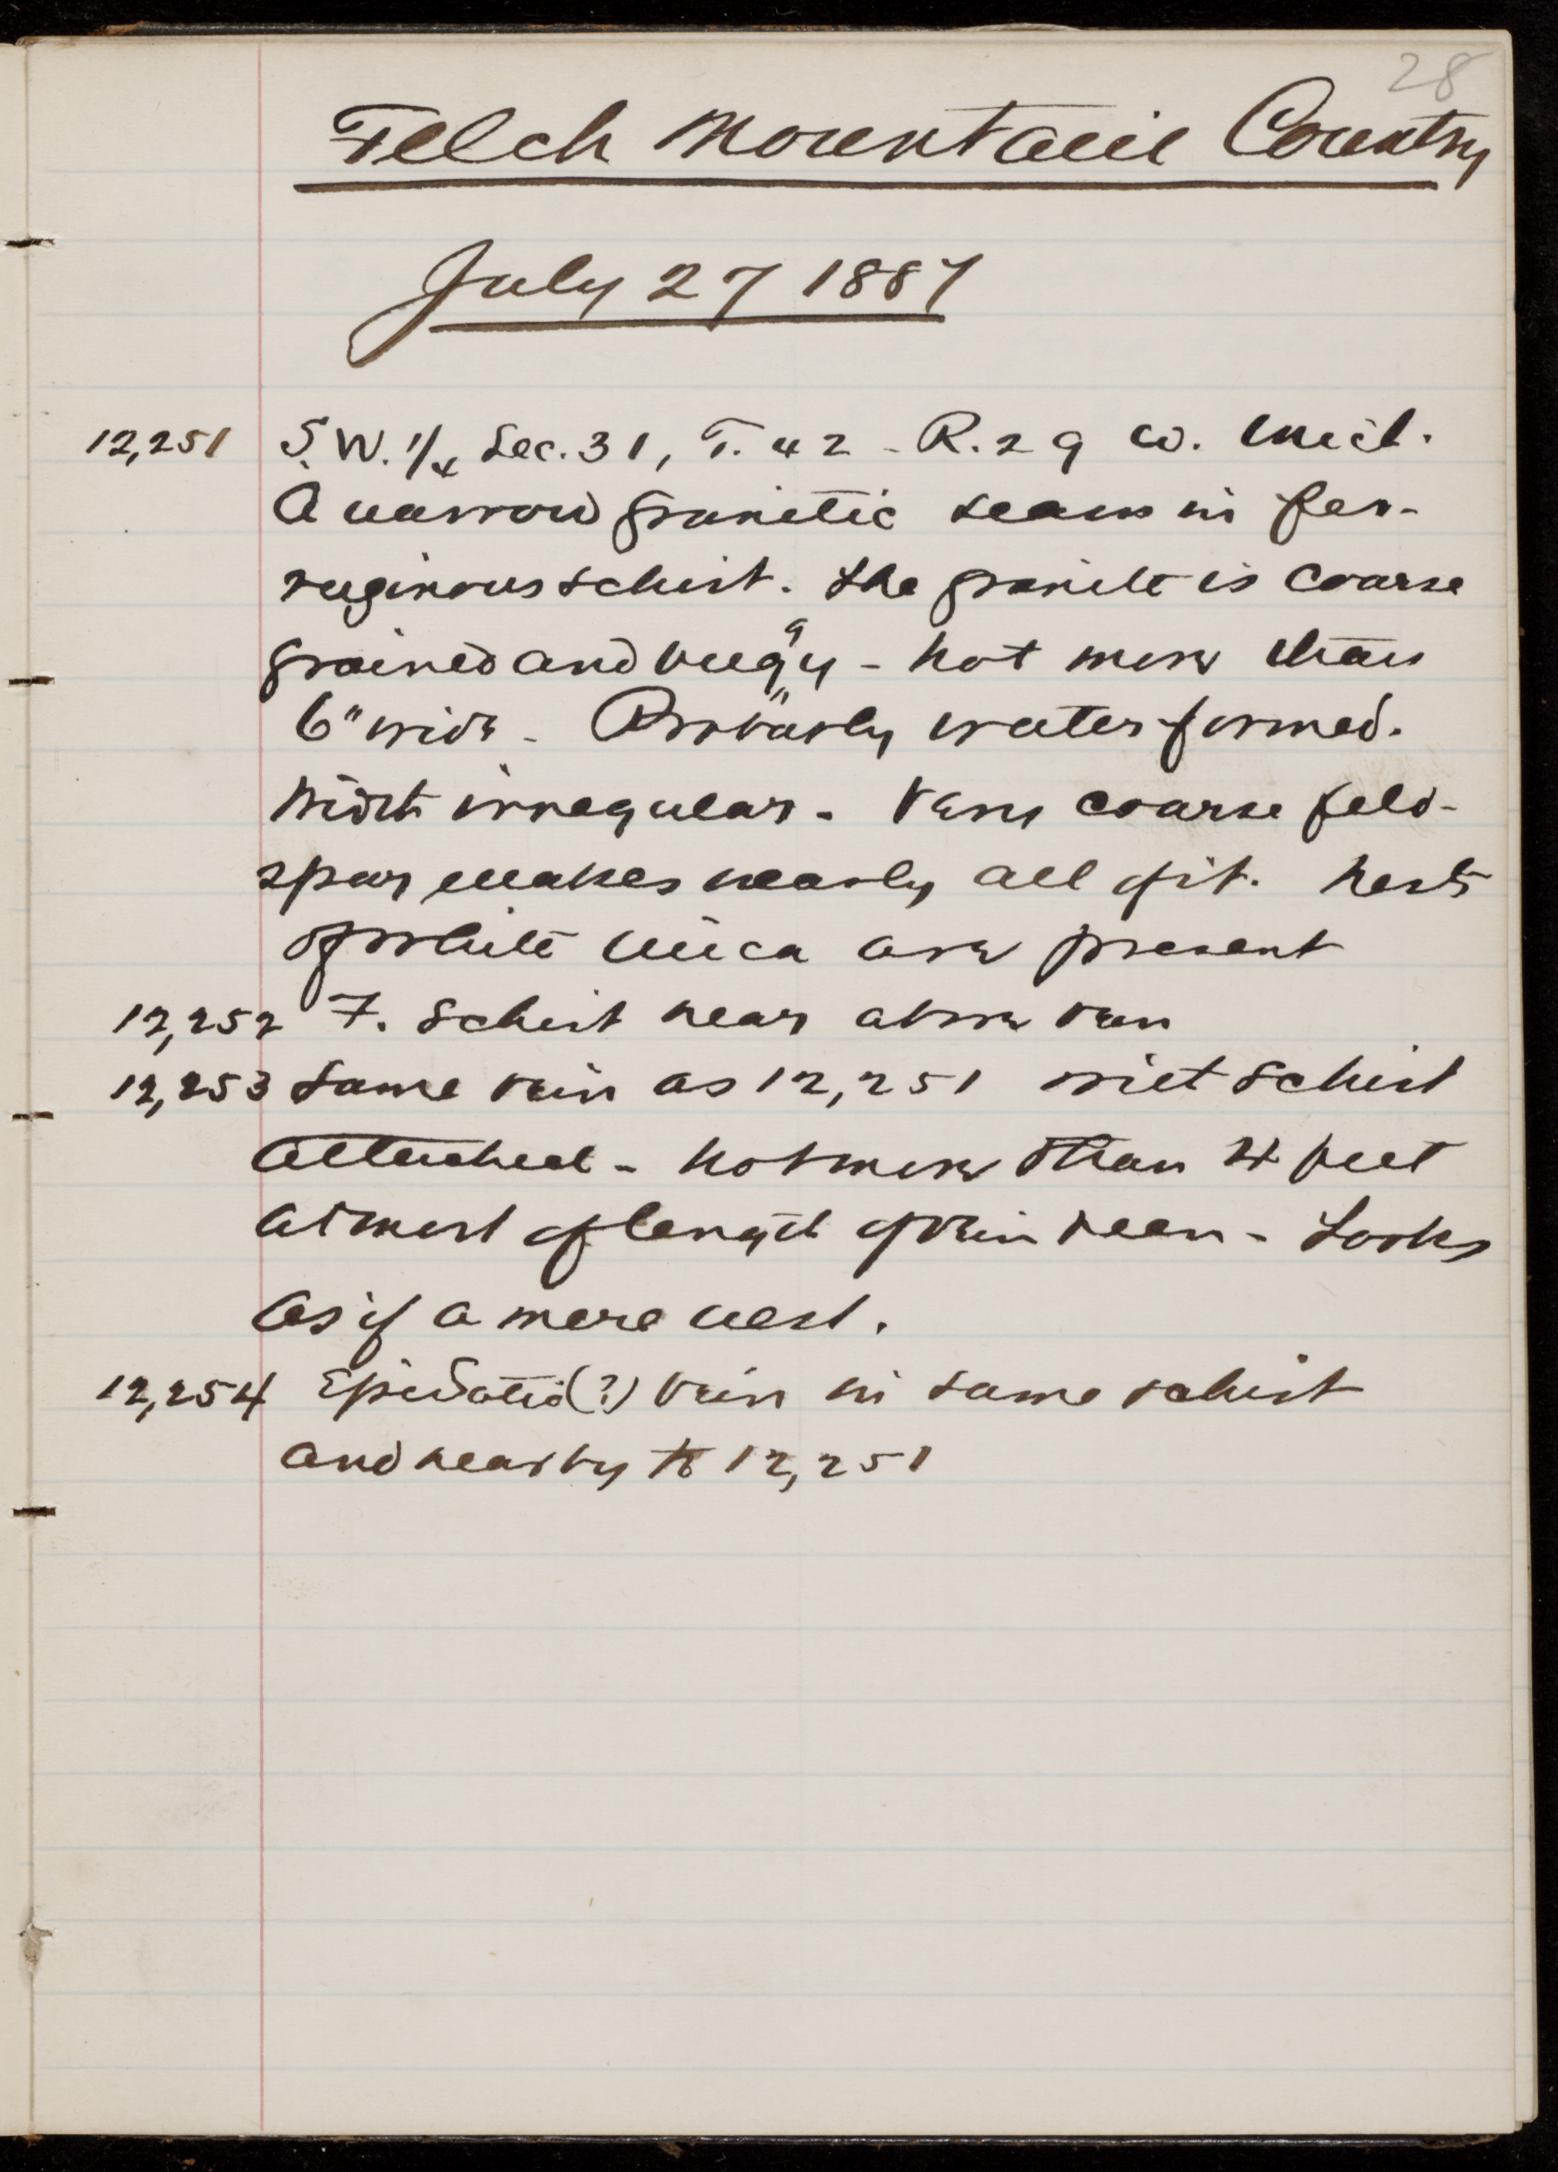 28
Felch Mountain Country
July 27 1887
12,251 S.W. 1/4 Sec. 31, T. 42 - R. 29 W. Mich.
A narrow granitic seam in fer-
ruginous schist. The granite is coarse
grained and vuggy - not more than
6" wide - Probably water formed.
Width irregular - Very coarse feld-
spar makes nearly all of it. Nests
of white mica are present
12,252 F. Schist near above vein
12,253 Same vein as 12,251 with schist
attached - not more than 4 feet
at most of length of vein seen - Looks
as if a mere nest.
12,254 Epidotic(?) vein in same schist
and nearby to 12,251